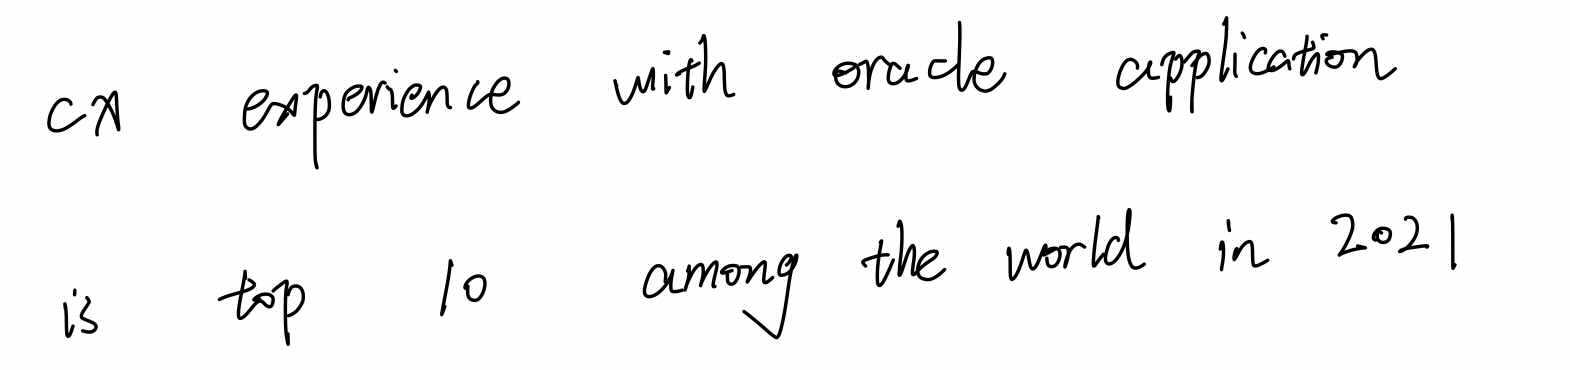 cx experience with oracle application
is top 10 among the world in 2021